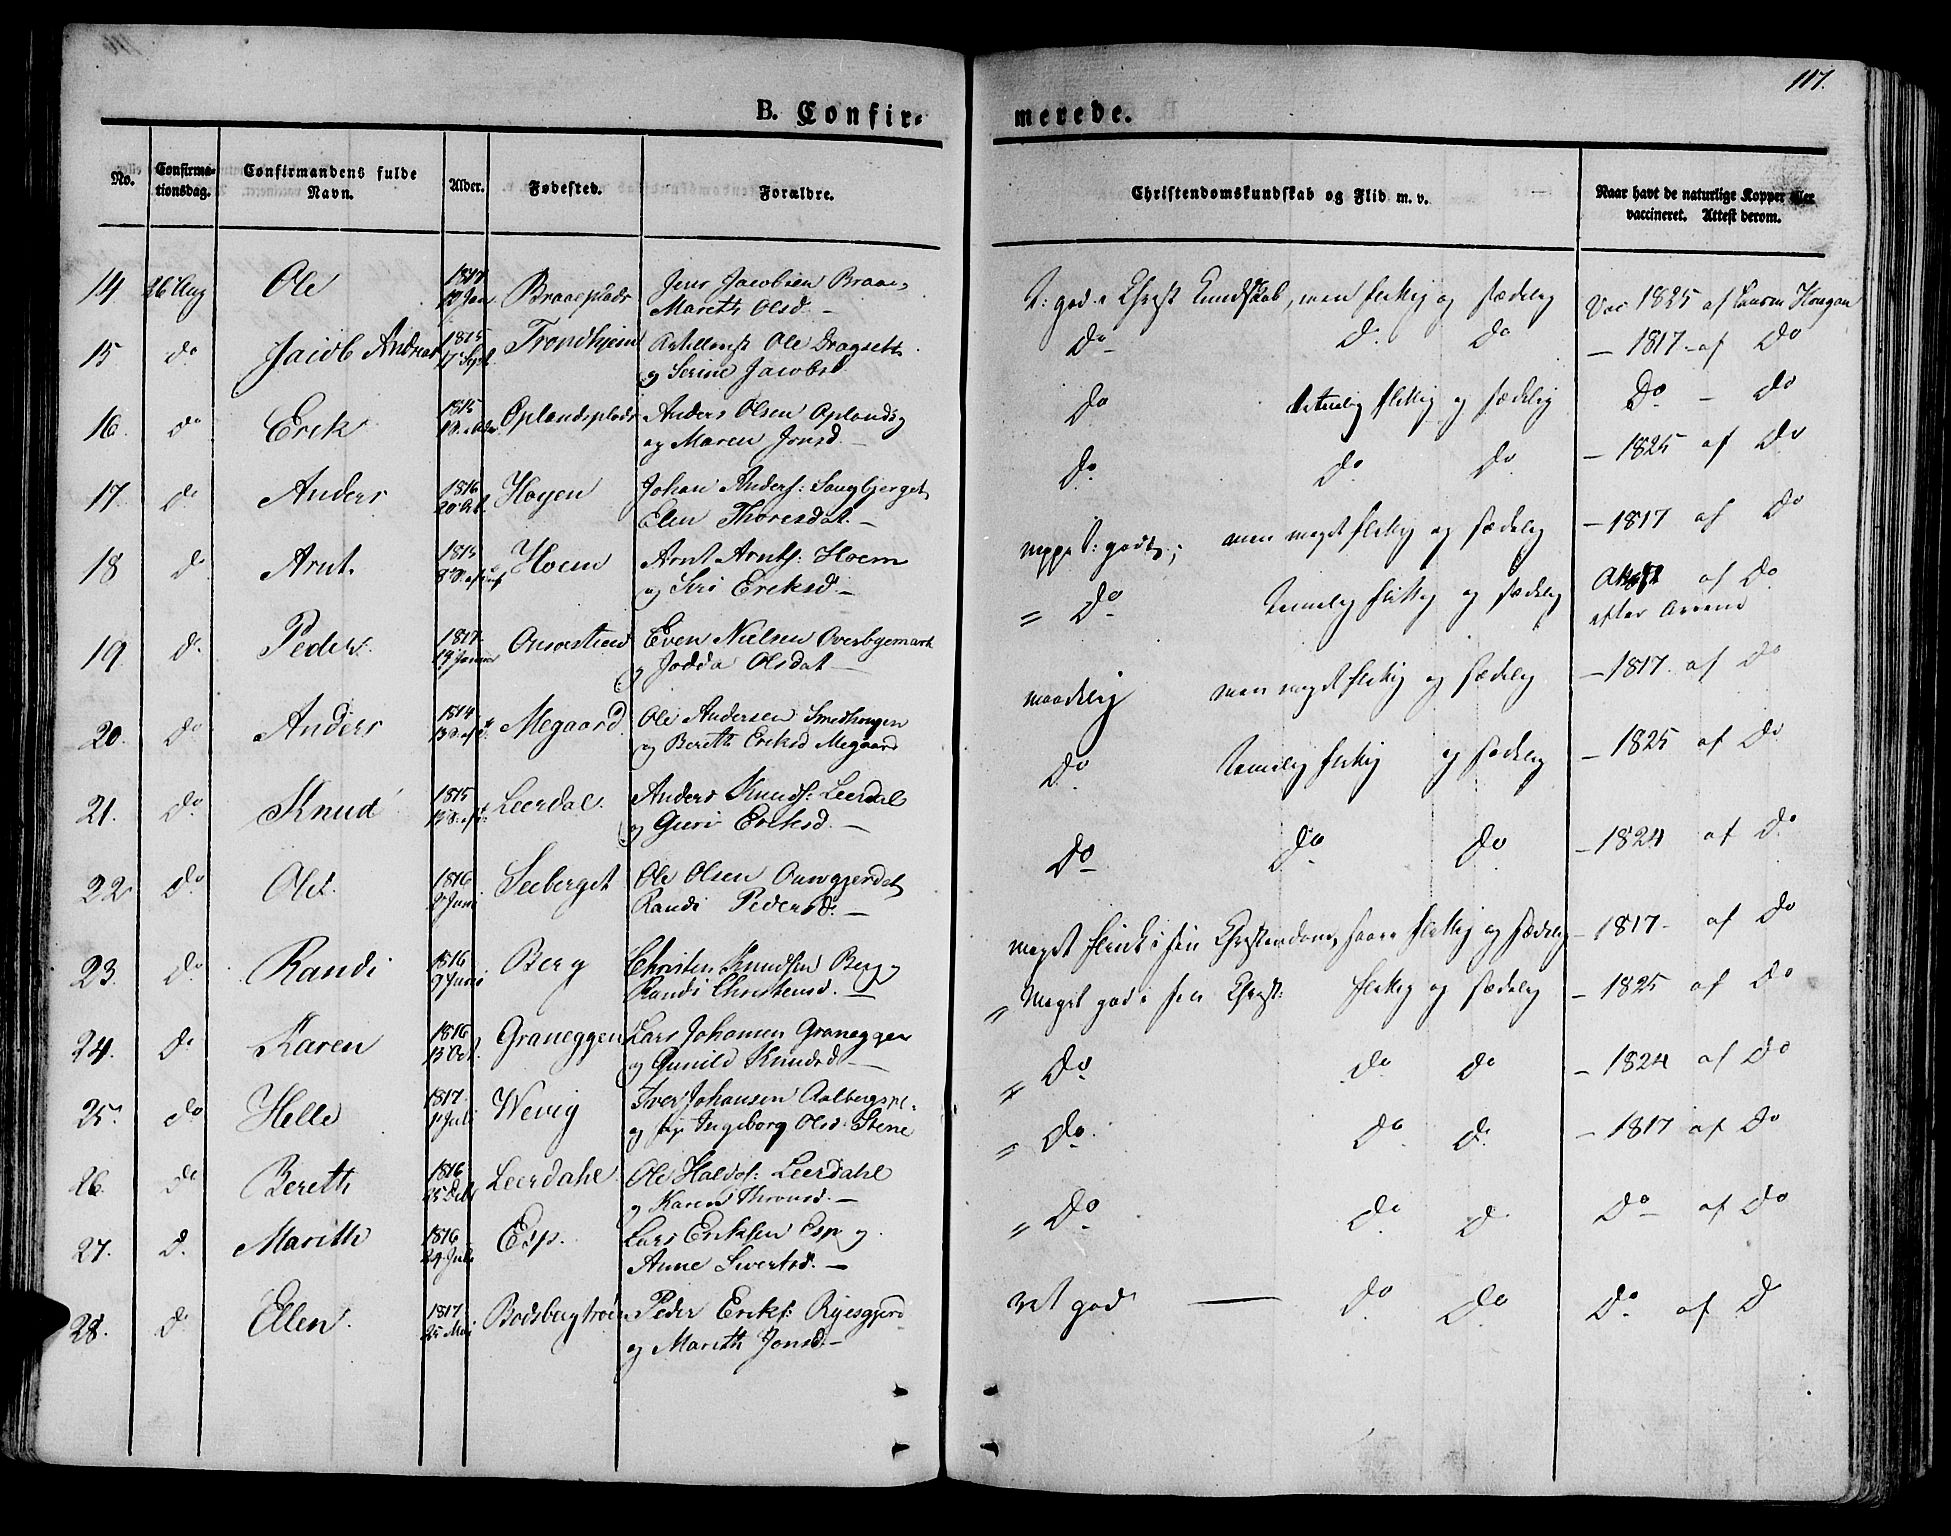 117.
B. Confir- merede.
No. Confirmationsdag. Confirmandens fulde Navn. Alder. Fødested. Forældre. Christendomskundskab og Flid m. v. Naar havt de naturlige Kopper eller vaccineret. Attest derom.
14 26 Aug Ole 1817 Braaeplads Jens Jacobsen Braae, T: god i Christ Kundskab, men flittig og sædelig Vac 1825 af
Mareth Olsd. —
15 do Jacob Andreas 1815 17 Sept. Trondhjem Ole Dragseth Do do do — 1817 - af Do
og Serine Jacobsd
16. do Erik 1815 Oplandsplads Anders Olsen Oplands, Do temelig flittig og sædelig Do — do
og Maren Jonsd. —
17. do Anders 1816 20 Oct. Hoyen Johan Anders: Saugbjerget Do do do — 1825 af Do
Elen Thoresdat. —
18 do Arnt. 1815 Hoem Arnt Arnts: Hoem neppe t: godt; men meget flittig og sædelig — 1817 af Do
og Siri Eriksd —
19 do Peder. 1817. 19 Januar Even Nielsen Overbyemark „ Do temelig flittig og sædelig af Do
og Jodda Olsdat — efter
20. do Anders 1814 Megaard. Ole Andersen Smedhougen maadelig men meget flittig og sædelig — 1817. af Do
og Bereth Eriksd Megaard
21. do Knud 1815 Leerdal. Anders Knuds: Leerdal Do temelig flittig og sædelig — 1825 af Do
og Guri Eriksd. —
22 do Ole. 1816 2 Juni Seeberget Ole Olsen Do do do — 1824 af Do
Randi Pedersd. —
23. do Randi 1816 9 Juni Berg Christen Knudsen Berg, meget flink i sin Christendom, saare flittig og sædelig — 1817 - af Do
Randi Christensd. —
24. do Karen 1816 13 Oct. Graneggen Lars Johansen Graneggen „ Meget god i sin Christ: flittig og sædelig — 1825 af Do
og Gunild Knudsd —
25. do Helle 1817. 1 Juli Wevig Iver Johansen Aalbergs „ Do do do — 1824 af Do
og Ingeborg Olsd Stene
26. do Bereth 1816 Leerdahl Ole Haldos: Leerdahl „ Do. do do — 1817 af Do
og Karen Thronsd. —
27. do Marith 1816 24 Juli Esp. Lars Eriksen Esp og „ Do do do Do af Do
Anne Sivertsd. —
28. do Ellen. 1817. 25 Maj Bodsbergtrøen Peder Eriks: Ryesgjerd ret god — do Do Do af D
og Mareth Jonsd —